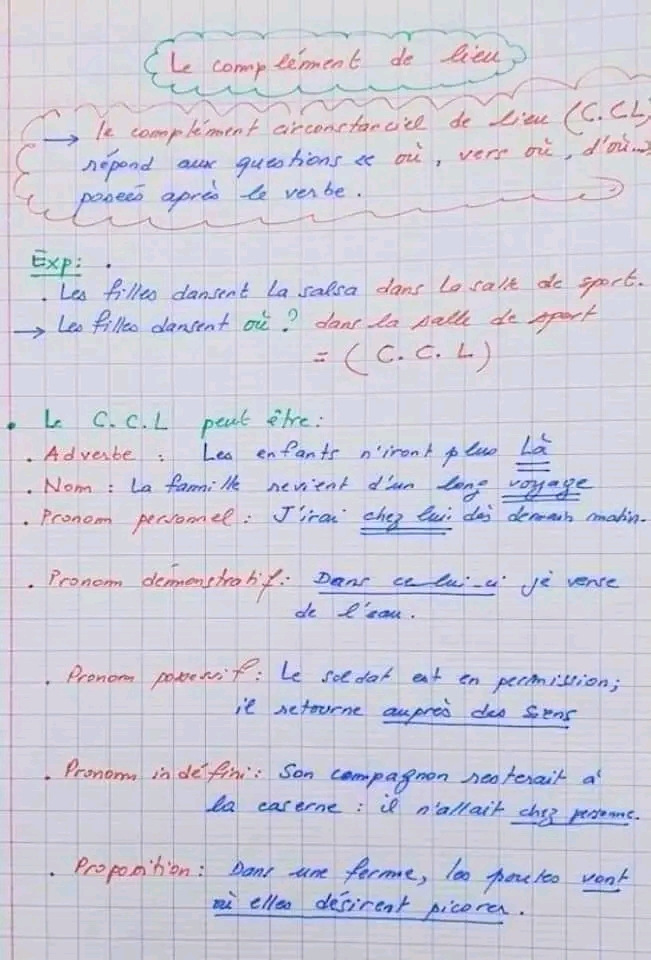 Le complément de lieu
→ le complément circonstanciel de lieu (C.C.L)
répond aux questions où, vers où, d'où...
posées après le verbe.
Exp:
. Les filles dansent la salsa dans la salle de sport.
→ Les filles dansent où ? dans la salle de sport
= (C.C.L)
• Le C.C.L peut être:
. Adverbe : Les enfants n'iront plus là
. Nom : La famille revient d'un long voyage
. Pronom personnel : J'irai chez lui dès demain matin.
. Pronom démonstratif : Dans celui-ci je verse
de l'eau.
. Pronom possessif : Le soldat est en permission;
il retourne auprès des siens
. Pronom indéfini : Son compagnon resterait à
la caserne : il n'allait chez personne.
. Proposition : Dans une ferme, les poules vont
où elles désirent picorer.